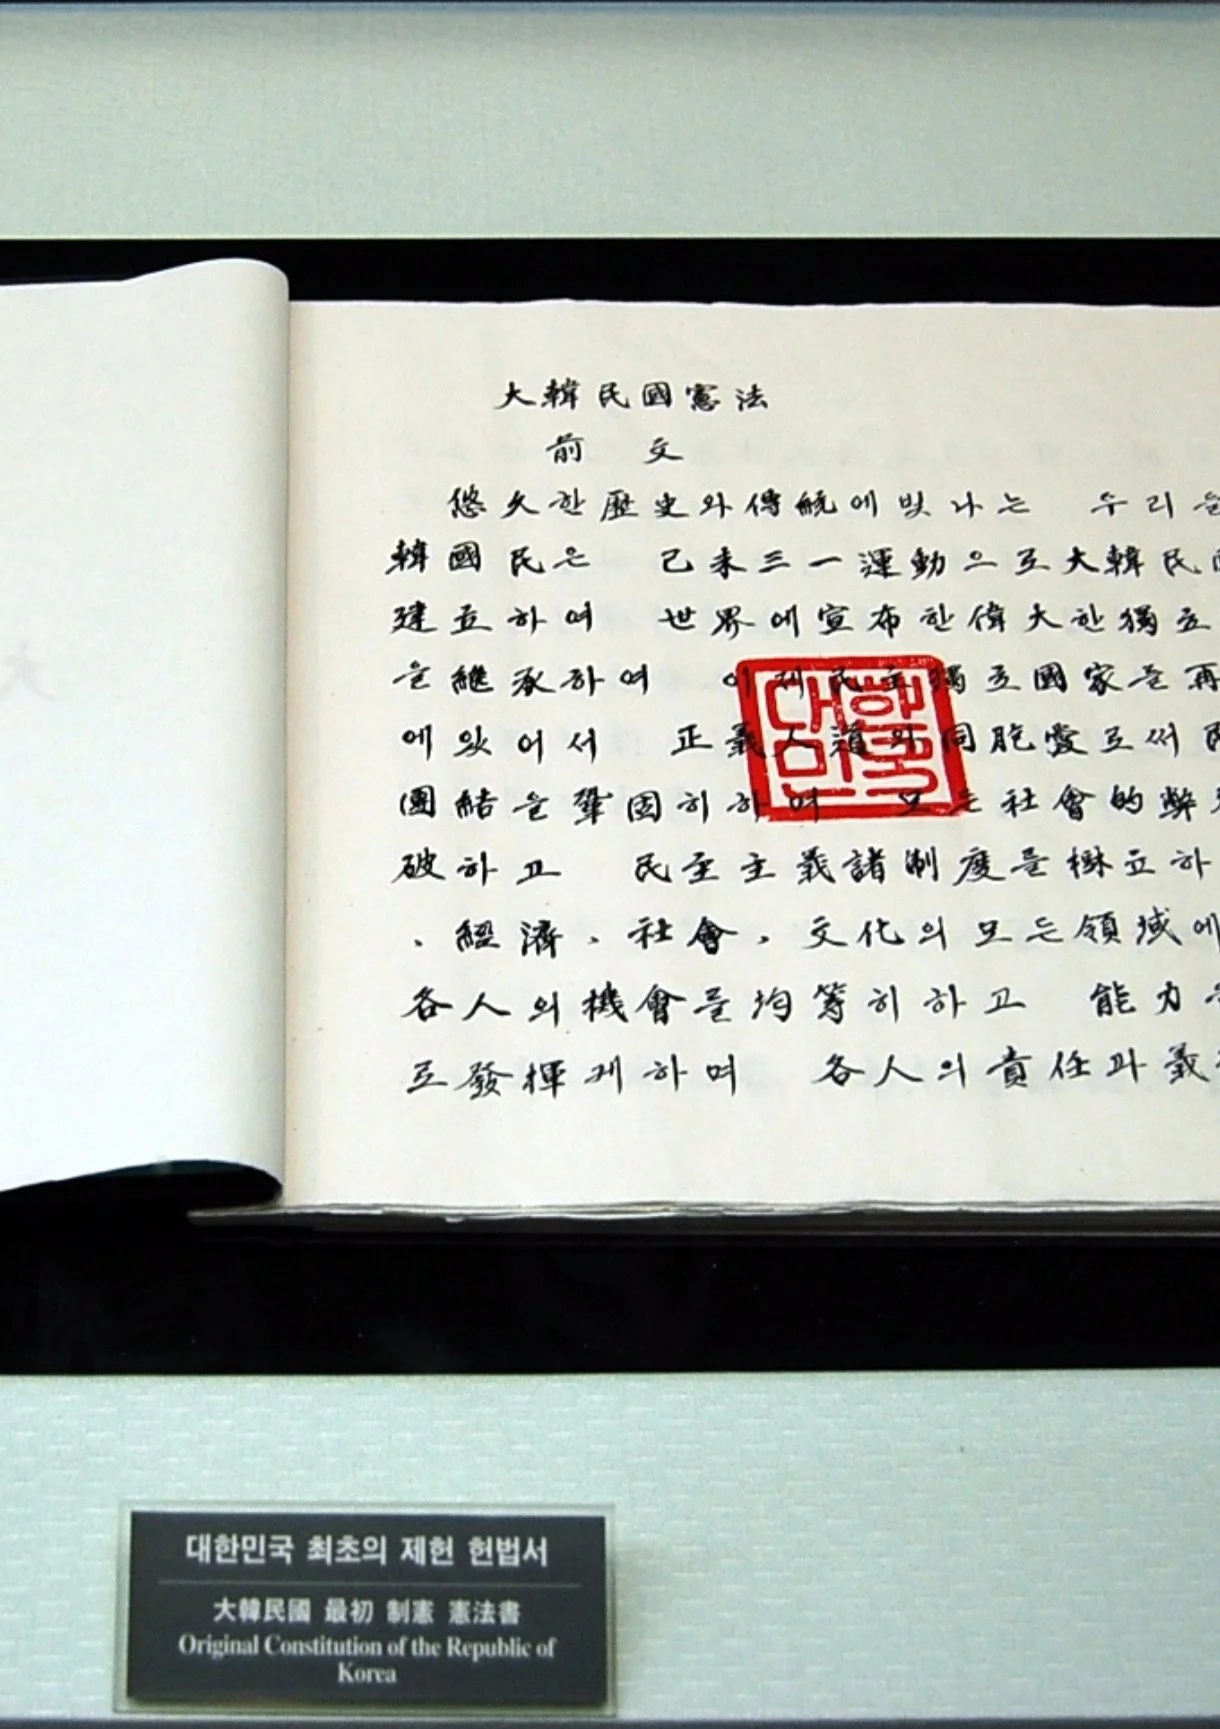 大韓民國憲法
前 文
悠久한歷史와傳統에빛나는 우리들
韓國民은 己未三一運動으로大韓民國
建立하여 世界에宣布한偉大한獨立
을繼承하여 이제民主獨立國家를再
에있어서 正義人道와同胞愛로써民
團結을鞏固히하며 모든社會的弊習
破하고 民主主義諸制度를樹立하
、經濟、社會、文化의모든領域에
各人의機會를均等히하고 能力을
로發揮케하며 各人의責任과義
대한민국
대한민국 최초의 제헌 헌법서
大韓民國 最初 制憲 憲法書
Original Constitution of the Republic of
Korea